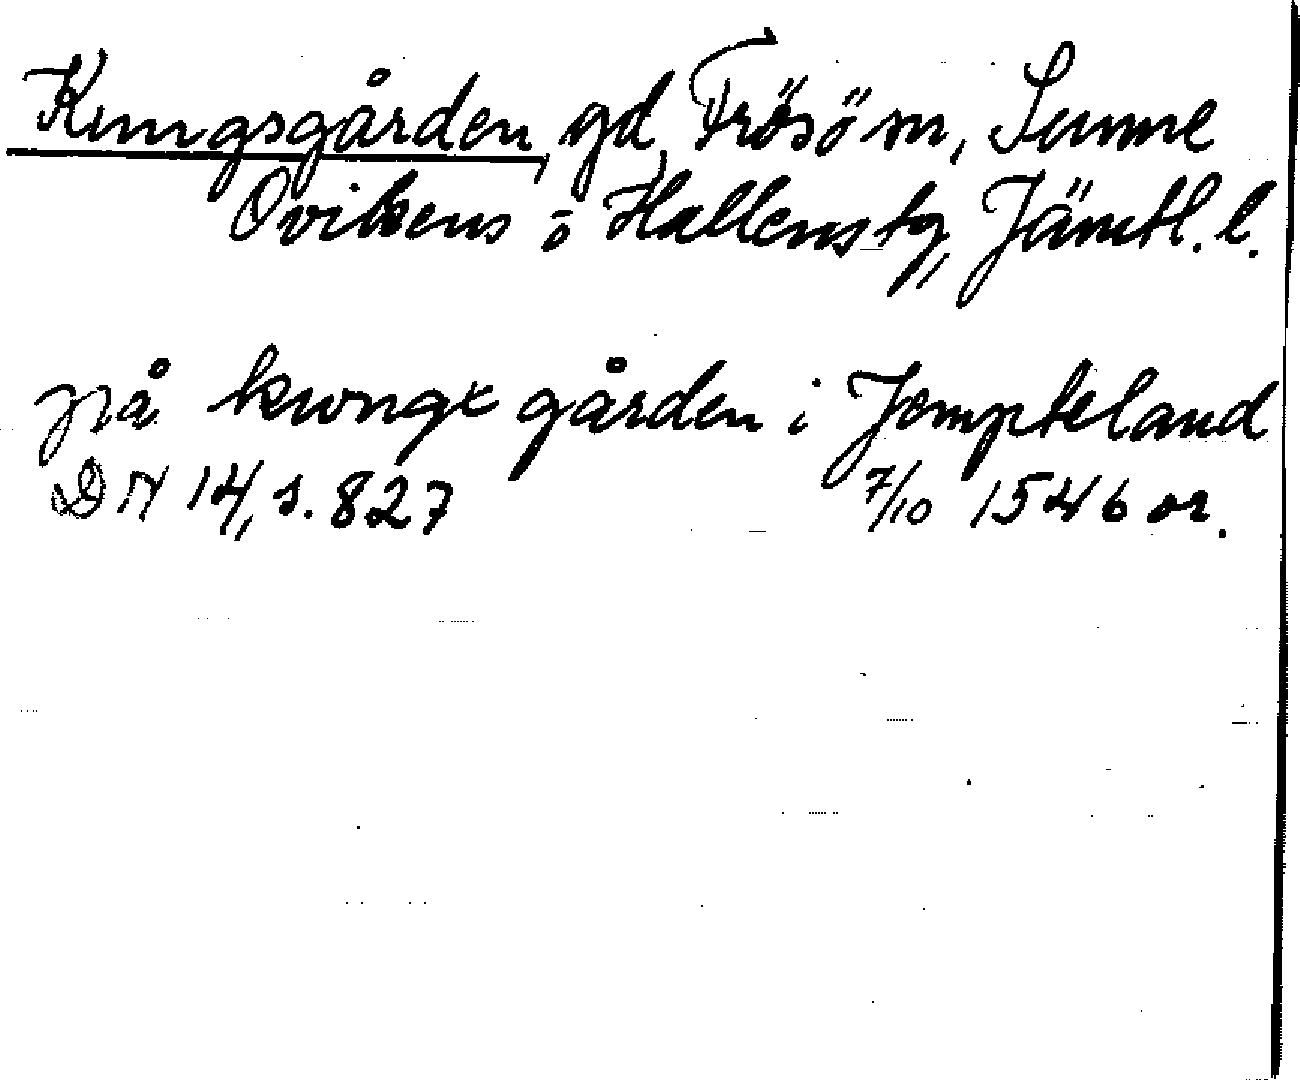 Kungsgården, gd, Frösö sn, Sunne
Ovikens o Hallens tg, Jämtl. l.
på kwngx gården i Jempteland
DN 14, s. 827 7/10 1546 or.